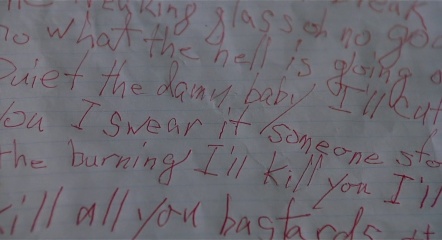 glass oh no god
no what the hell is going o
Quiet the damn baby I'll cut
You I swear it someone sto
the burning I'll kill you I'll
kill all you bastards